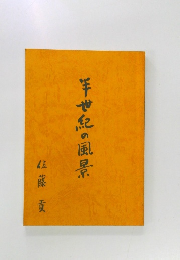 半世紀の風景
佐藤